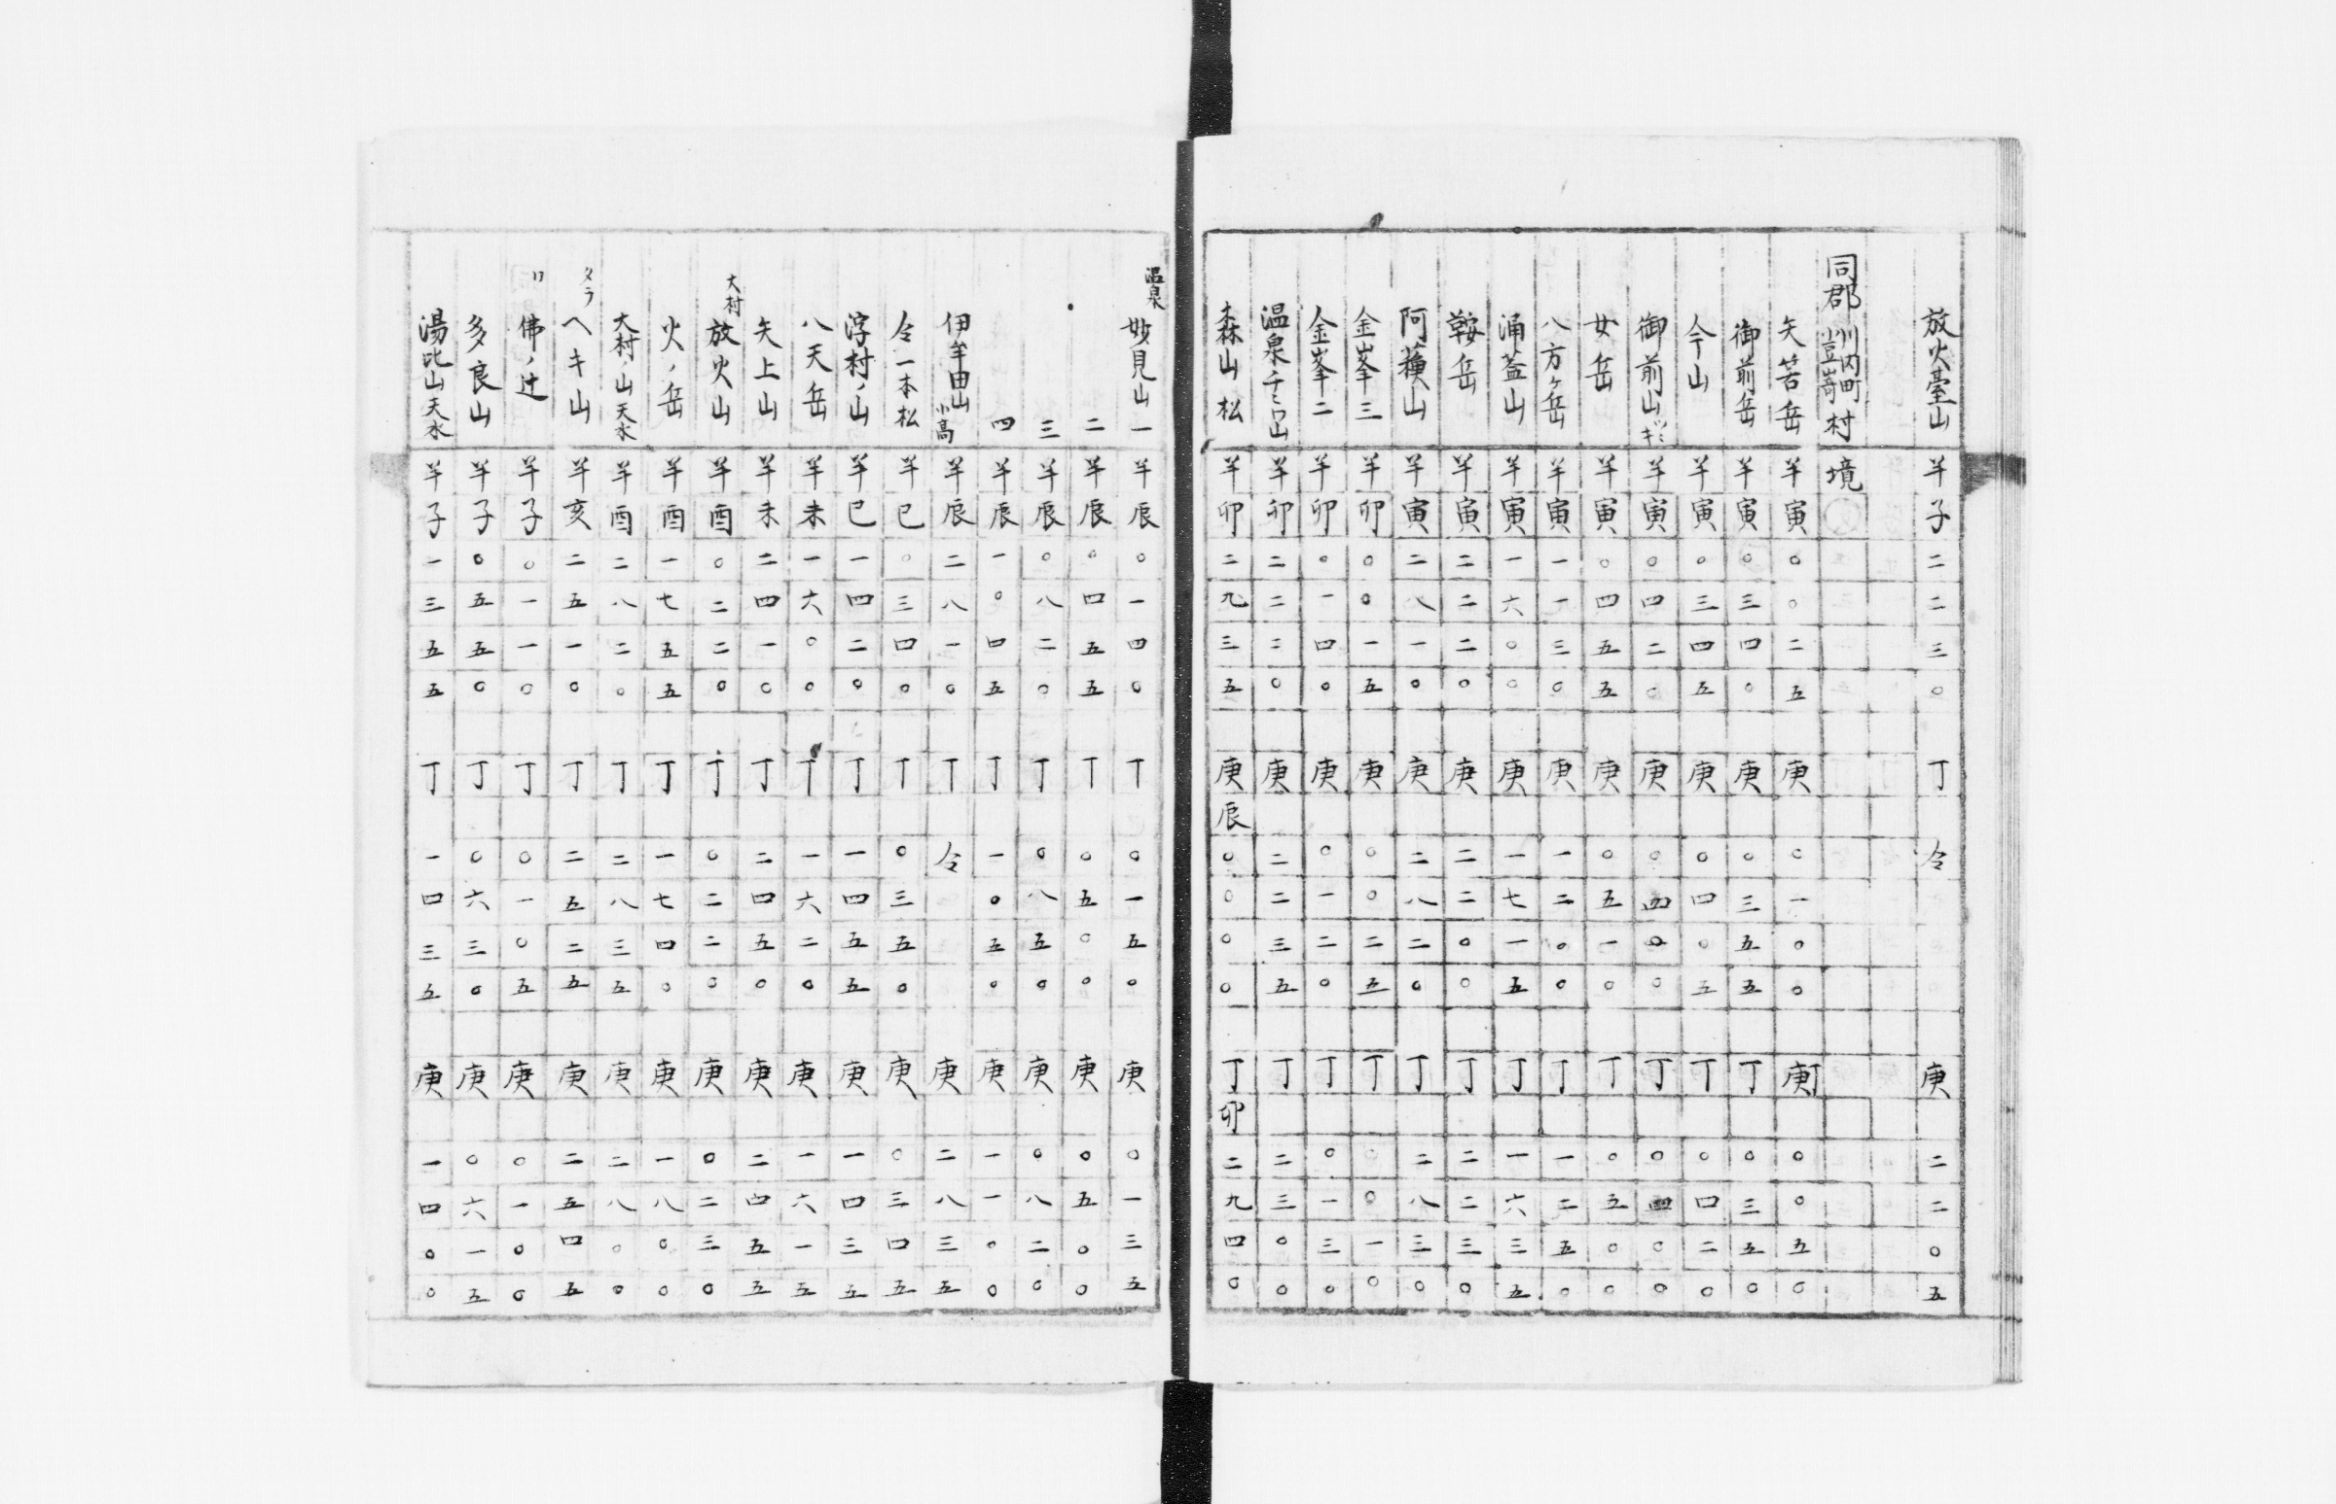 放火臺山 羊子二二三〇 丁 仝 庚 二二〇五
同郡 川内町 豈嵜 村 境
矢筈岳 羊寅〇〇二五 庚 〇一〇〇 庚丁 〇〇五〇
御前岳 羊寅〇三四〇 庚 〇三五五 丁 〇三五〇
今山 羊寅〇三四五 庚 〇四〇五 丁 〇四二〇
御前山 羊寅〇四二〇 庚 〇四〇〇 丁 〇四〇〇
女岳 羊寅〇四五五 庚 〇五一〇 丁 〇五〇〇
八方ヶ岳 羊寅一一三〇 庚 一二〇〇 丁 一二五〇
涌葢山 羊寅一六〇〇 庚 一七一五 丁 一六三五
鞍岳 羊寅二二二〇 庚 二二〇〇 丁 二二三〇
阿蘓山 羊寅二八一〇 庚 二八二〇 丁 二八三〇
金峯三 羊卯〇〇一五 庚 〇〇二五 丁 〇〇一〇
金峯二 羊卯〇一四〇 庚 〇一二〇 丁 〇一三〇
温泉千々ワ山 羊卯二二二〇 庚 二二三五 丁 二三〇〇
森山松 羊卯二九三五 庚辰〇〇〇〇 丁卯二九四〇
温泉妙見山一 羊辰〇一四〇 丁 〇一五〇 庚 〇一三五
二 羊辰〇四五五 丁 〇五〇〇 庚 〇五〇〇
三 羊辰〇八二〇 丁 〇八五〇 庚 〇八二〇
四 羊辰一〇四五 丁 一〇五〇 庚 一一〇〇
伊羊田山小高 羊辰二八一〇 丁 仝 庚 二八三五
仝一本松 羊巳〇三四〇 丁 〇三五〇 庚 〇三四五
浮村ノ山 羊巳一四二〇 丁 一四五五 庚 一四三五
八天岳 羊未一六〇〇 丁 一六二〇 庚 一六一五
矢上山 羊未二四一〇 丁 二四五〇 庚 二四五五
大村放火山 羊酉〇二二〇 丁 〇二二〇 庚 〇二三〇
火ノ岳 羊酉一七五五 丁 一七四〇 庚 一八〇〇
大村ノ山天水 羊酉二八二〇 丁 二八三五 庚 二八〇〇
タラヘキ山 羊亥二五一〇 丁 二五二五 庚 二五四五
〃佛ノ辻 羊子〇一一〇 丁 〇一〇五 庚 〇一〇〇
多良山 羊子〇五五〇 丁 〇六三〇 庚 〇六一五
湯比山天水 羊子一三五五 丁 一四三五 庚 一四〇〇